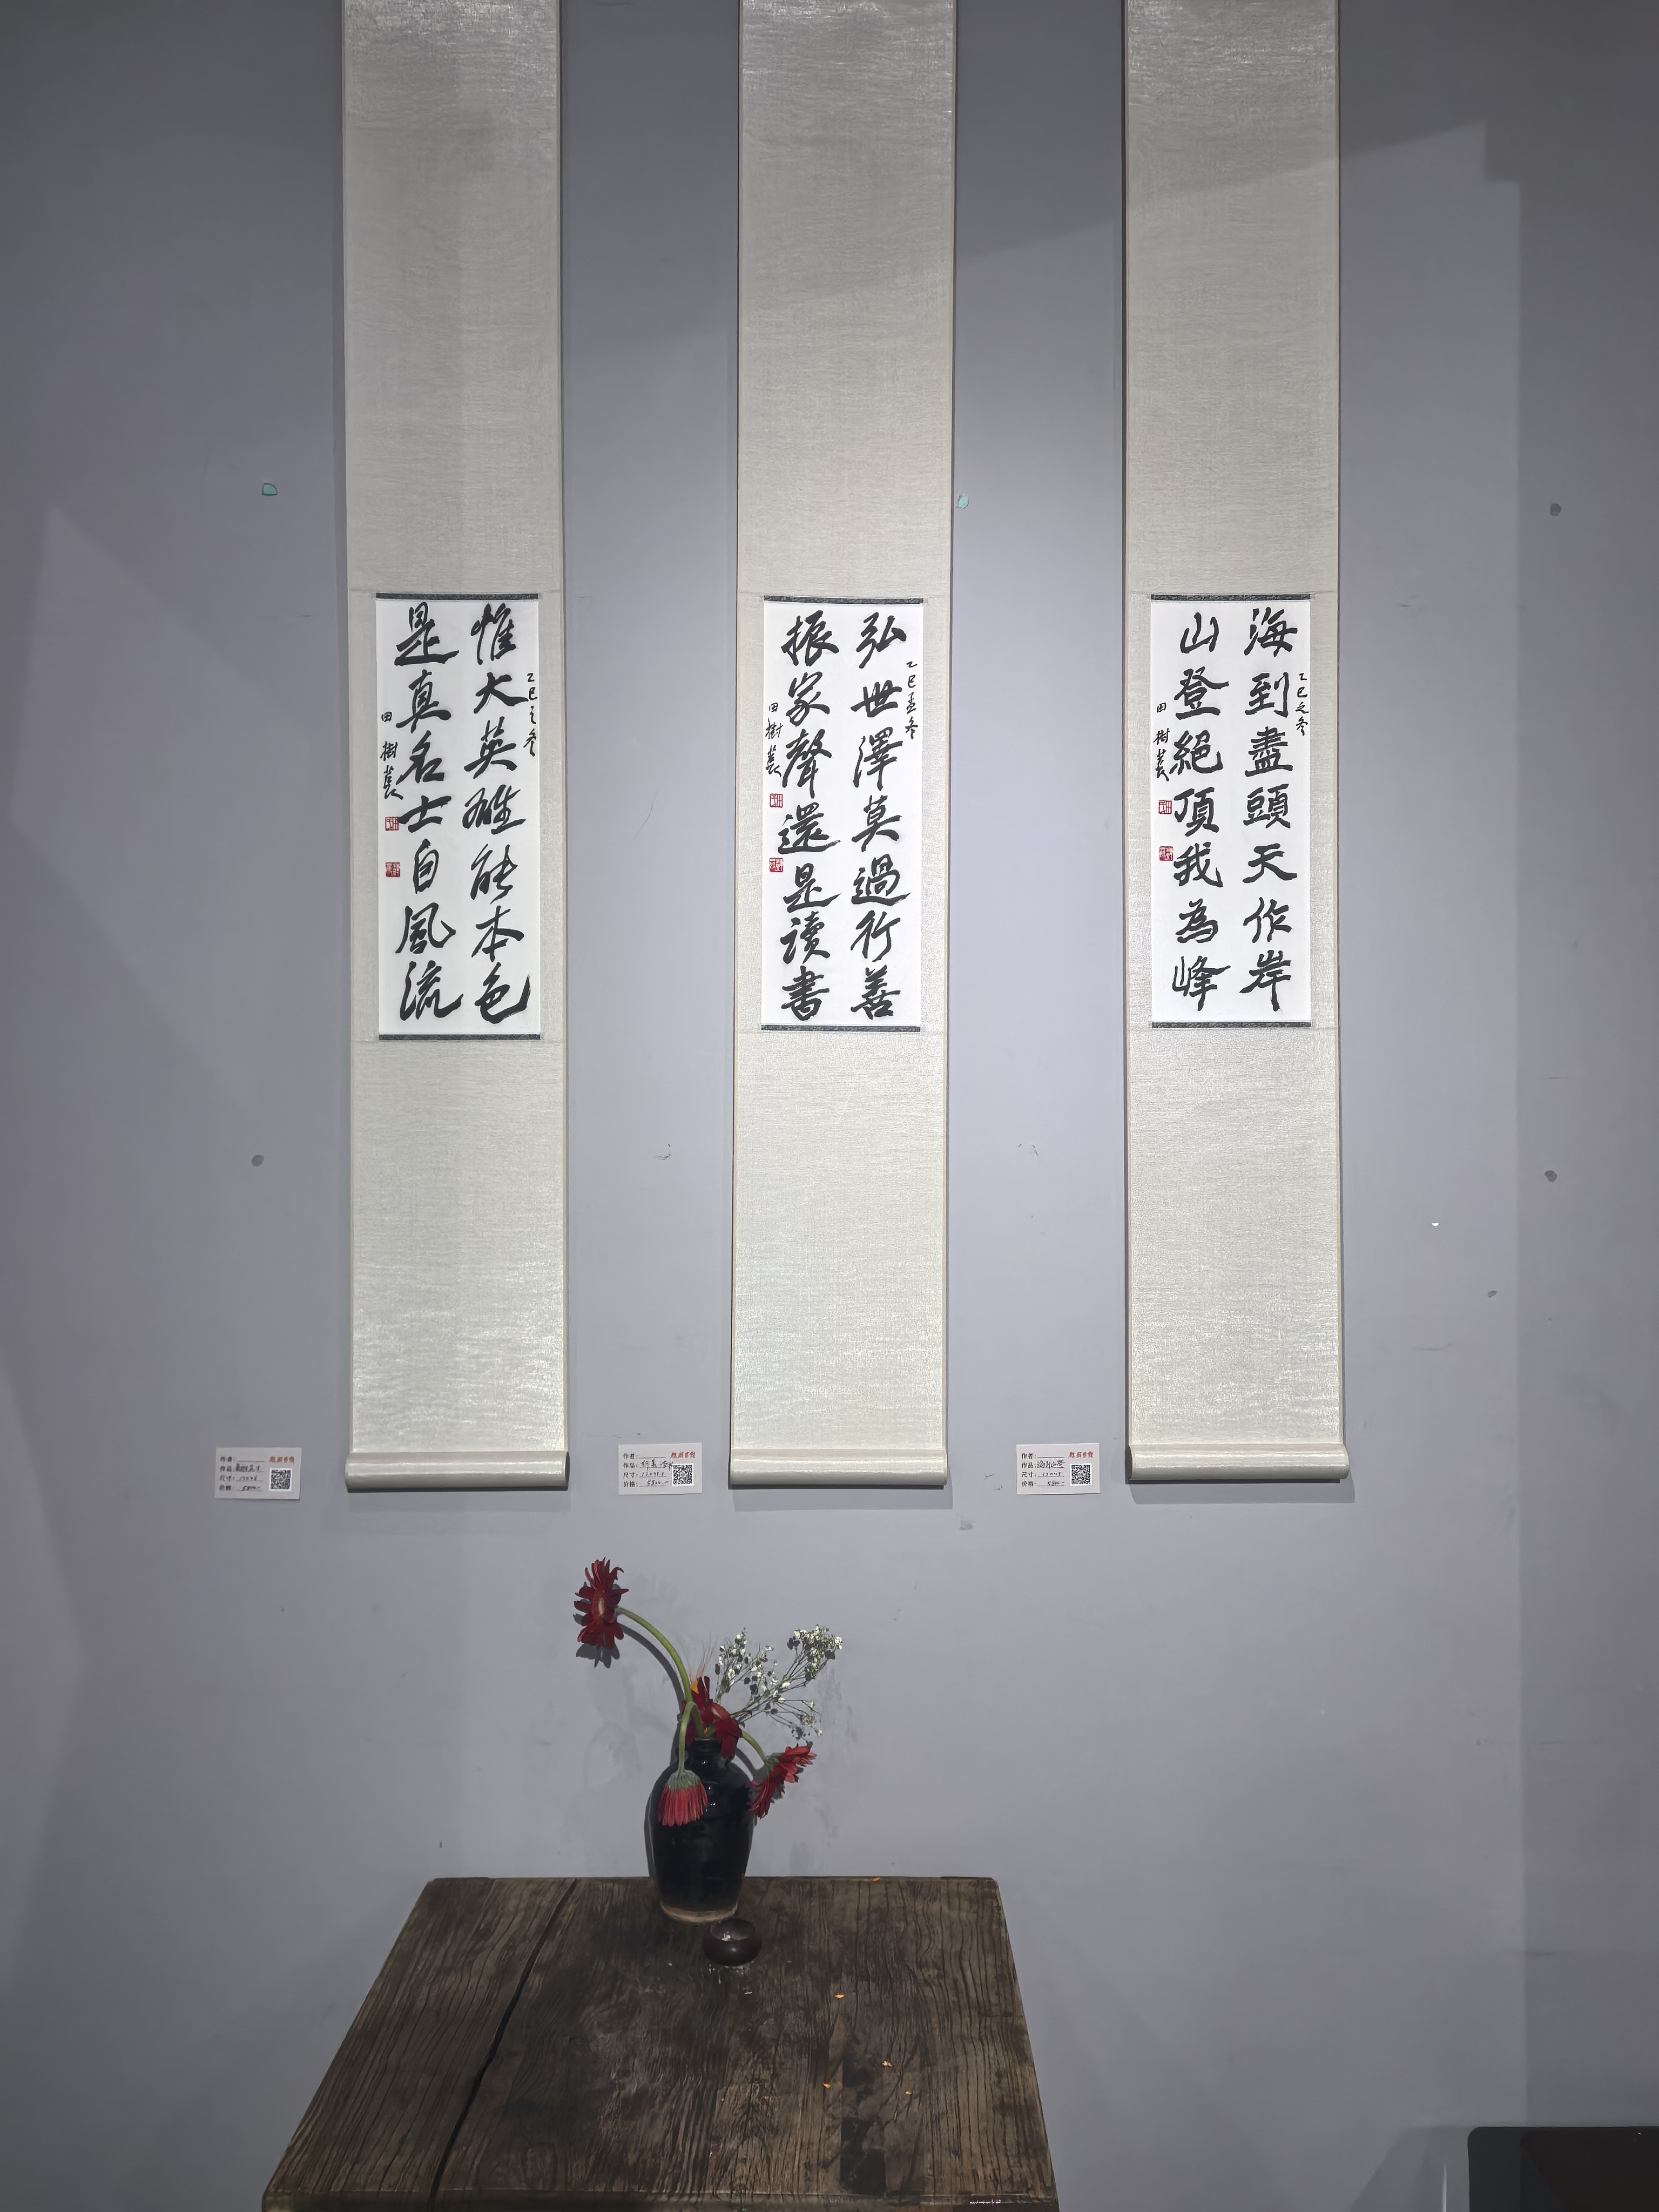 海到盡頭天作岸
山登絕頂我為峰
乙巳之冬
田樹萇
弘世澤莫過行善
振家聲還是讀書
乙巳孟冬
田樹萇
惟大英雄能本色
是真名士自風流
乙巳之冬
田樹萇
作者:
作品:
尺寸:
价格:
作者:
作品:
尺寸:
价格:
作者:
作品:
尺寸:
价格: